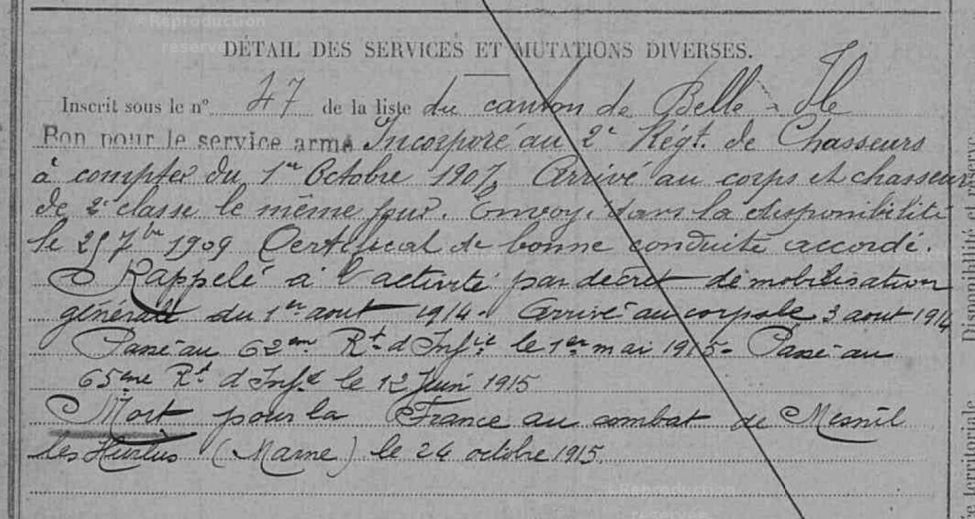 © Reproduction
reservée
DÉTAIL DES SERVICES ET MUTATIONS DIVERSES.
Inscrit sous le n° 47 de la liste du canton de Belle-Ile
Bon pour le service armé Incorporé au 2e Régt. de Chasseurs
à compter du 1er Octobre 1907, Arrivé au corps et chasseur
de 2e classe le même jour. Envoyé dans la disponibilité
le 25 7bre 1909 Certificat de bonne conduite accordé.
Rappelé à l'activité par décret de mobilisation
générale du 1er aout 1914. Arrivé au corps le 3 aout 1914
Passé au 62eme Rt d'Infie le 1er mai 1915 - Passé au
65eme Rt d'Infie le 12 Juin 1915
Mort pour la France au combat de Mesnil
les Hurlus (Marne) le 24 octobre 1915.
© Reproduction
réservée